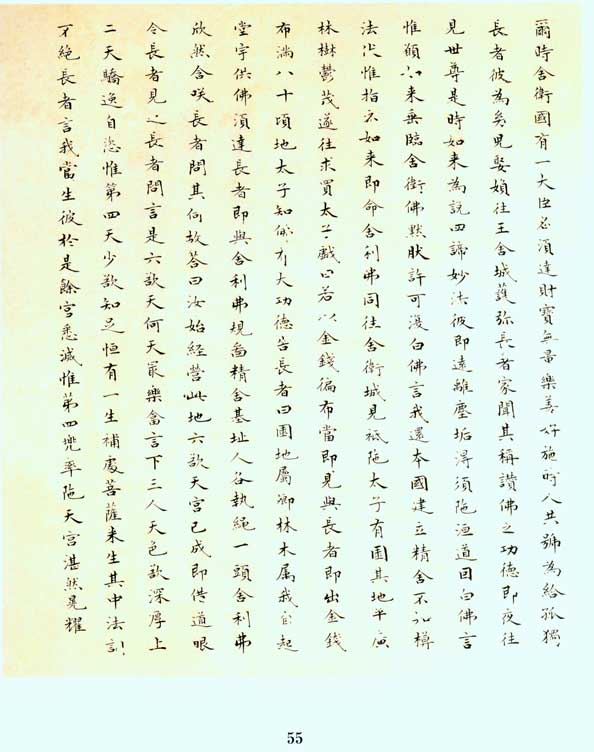 爾時舍衛國有一大臣名須達財寶無量樂善好施時人共號為給孤獨
長者彼為兒娶媍往王舍城護弥長者家聞其稱讚佛之功德即夜往
見世尊是時如来為說四諦妙法彼即遠離塵垢淂須陁洹道因白佛言
惟願如来垂臨舍衛佛黙肰許可復白佛言我還本國建立精舍不知樽
法伏惟指示如来即命舍利弗同往舍衛城見祇陁太子有園其地平廣
林樹欝茂遂往求買太子戲曰若以金錢徧布當即見與長者即出金錢
布滿八十頃地太子知佛有大功德告長者曰園地屬卿林木属我自起
堂宇供佛須達長者即與舍利弗規啚精舍基址人各執繩一頭舍利弗
欣然含咲長者問其何故答曰汝始經營此地六欲天宮已成即借道眼
令長者見之長者問言是六欲天何天最樂畣言下三人天色欲深厚上
二天驕逸自恣惟第四天少欲知足恒有一生補處菩薩来生其中法訓
不絕長者言我當生彼於是餘宮悉滅惟第四兜率陁天宮湛然晃耀
55